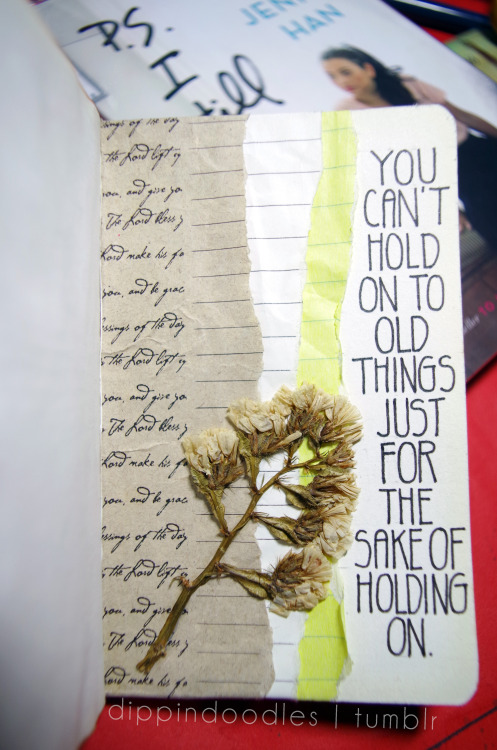 JENN
HAN
P.S.
I
still
ings of the day
the Lord lift u
you, and give yo
The Lord bless y
Lord make his fa
you, and be grac
ssings of the day
the Lord lift u
you, and give yo
The Lord bless y
Lord make his fa
you, and be grac
ssings of the day
the Lord lift u
you, and give yo
The Lord bless y
Lord make his fa
YOU
CAN'T
HOLD
ON TO
OLD
THINGS
JUST
FOR
THE
SAKE OF
HOLDING
ON.
dippindoodles | tumblr